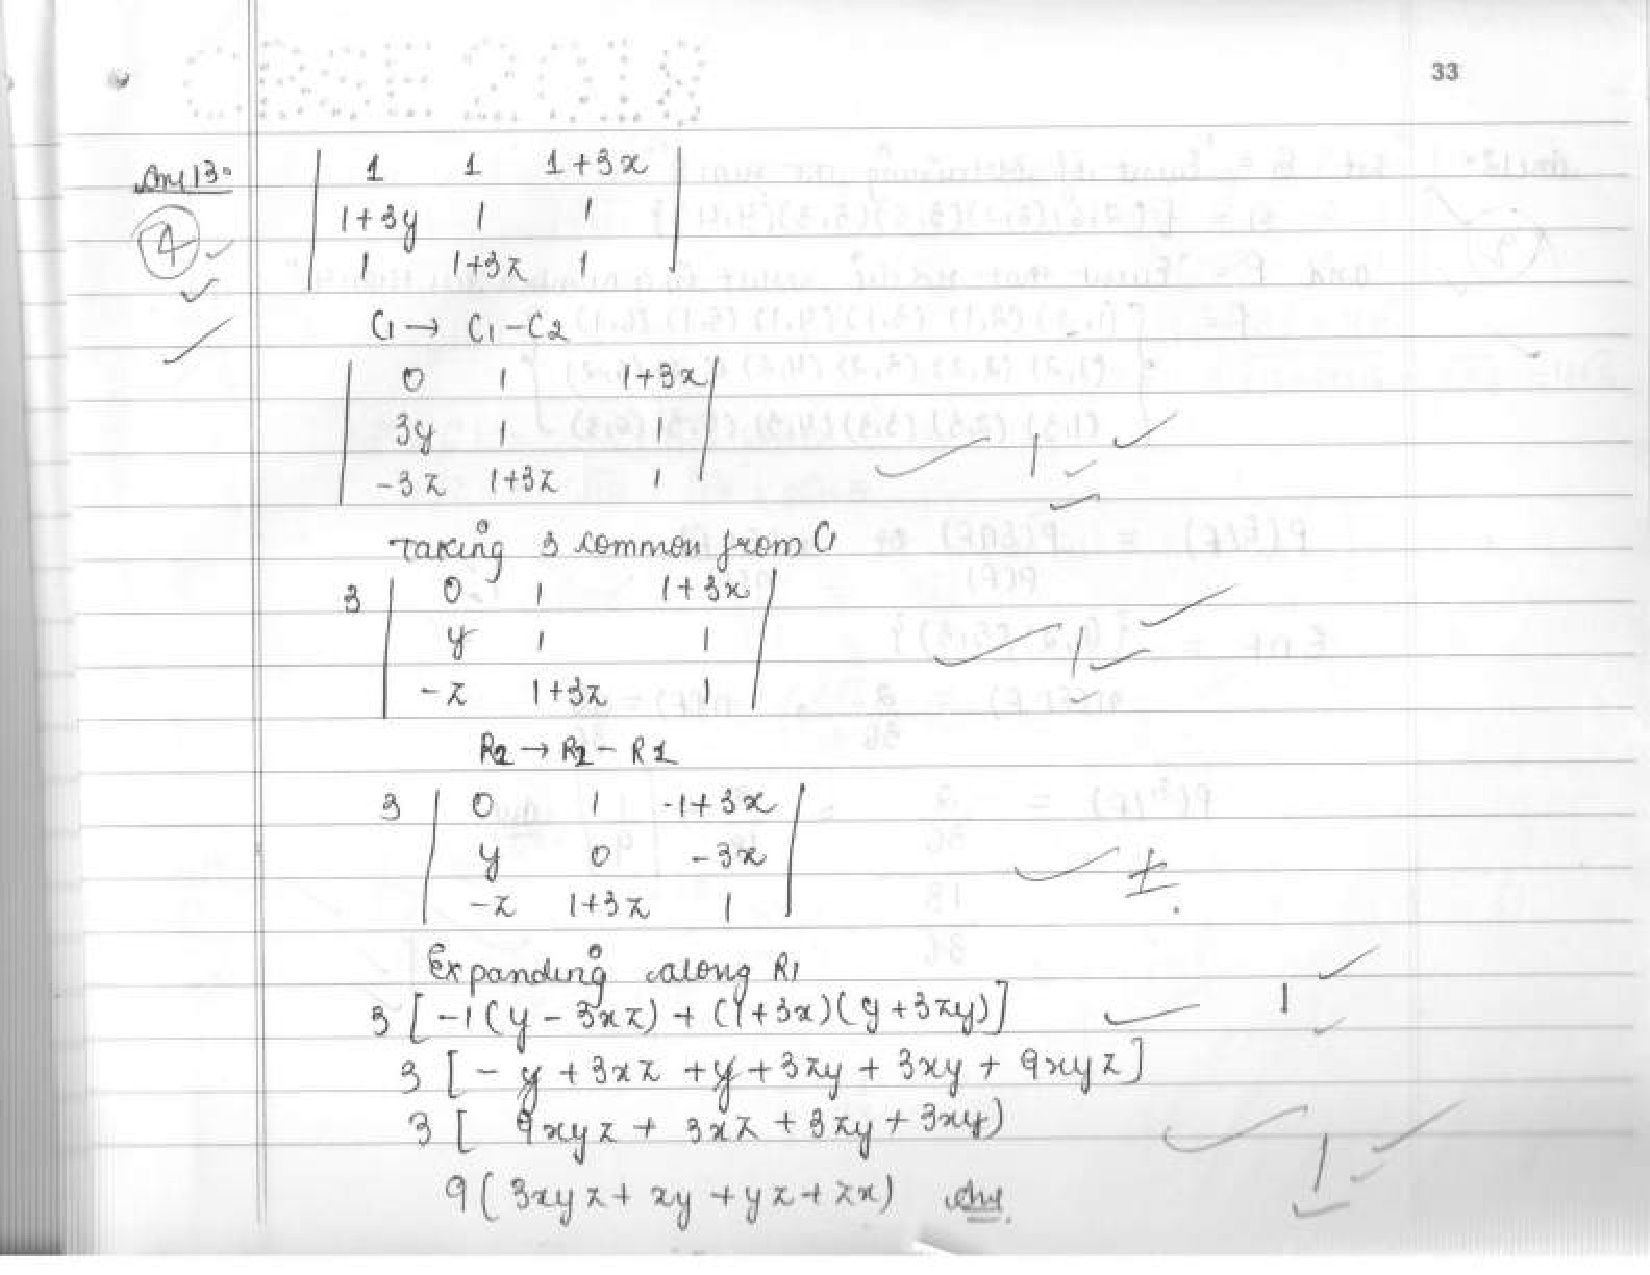 CBSE 2018
33
Ans 13.
| 1 1 1+3x |
④ | 1+3y 1 1 |
| 1 1+3z 1 |
C1 → C1-C2
| 0 1 1+3x |
| 3y 1 1 |
| -3z 1+3z 1 | 1
Taking 3 common from C1
3 | 0 1 1+3x |
| y 1 1 | 1
| -z 1+3z 1 |
R2 → R2 - R1
3 | 0 1 -1+3x |
| y 0 -3x |
| -z 1+3z 1 |
Expanding along R1
3 [ -1(y - 3xz) + (1+3x)(y+3zy)] 1
3 [ - y + 3xz + y + 3zy + 3xy + 9xyz]
3 [ 9xyz + 3xz + 3zy + 3xy)
9 ( 3xyz + xy + yz + zx) Ans. 1